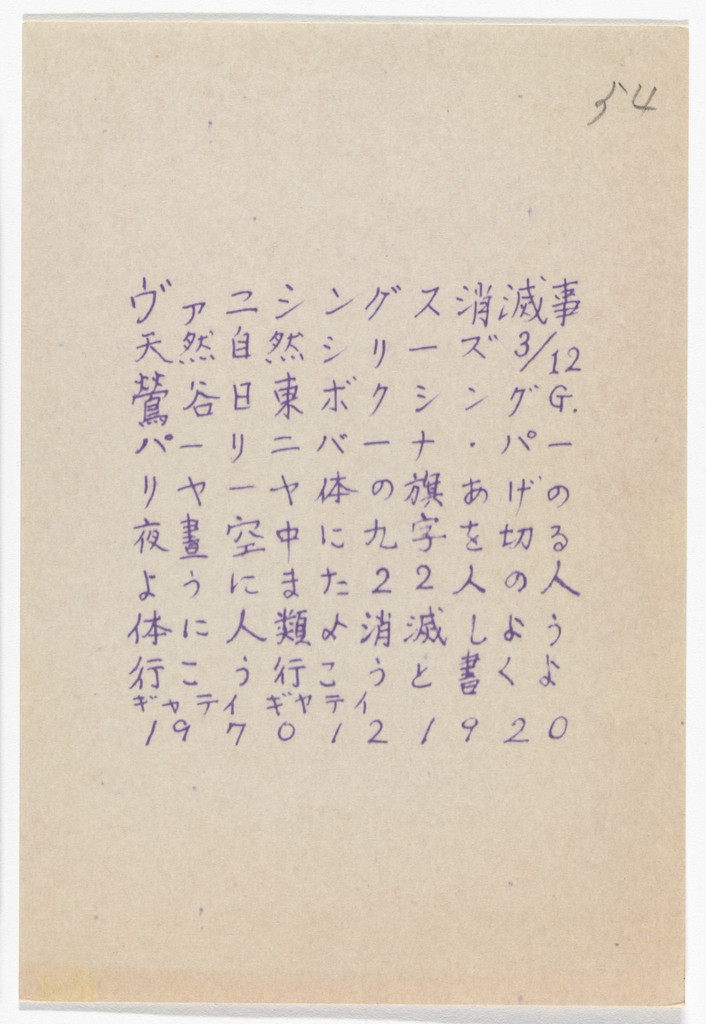 54
ヴァニシングス消滅事
天然自然シリーズ3/12
鶯谷日東ボクシングG.
パーリニバーナ・パー
リヤーヤ体の旗あげの
夜晝空中に九字を切る
ように また22人の人
体に人類よ消滅しよう
行こう行こうと書くよ
ギャティギャティ
1970121920